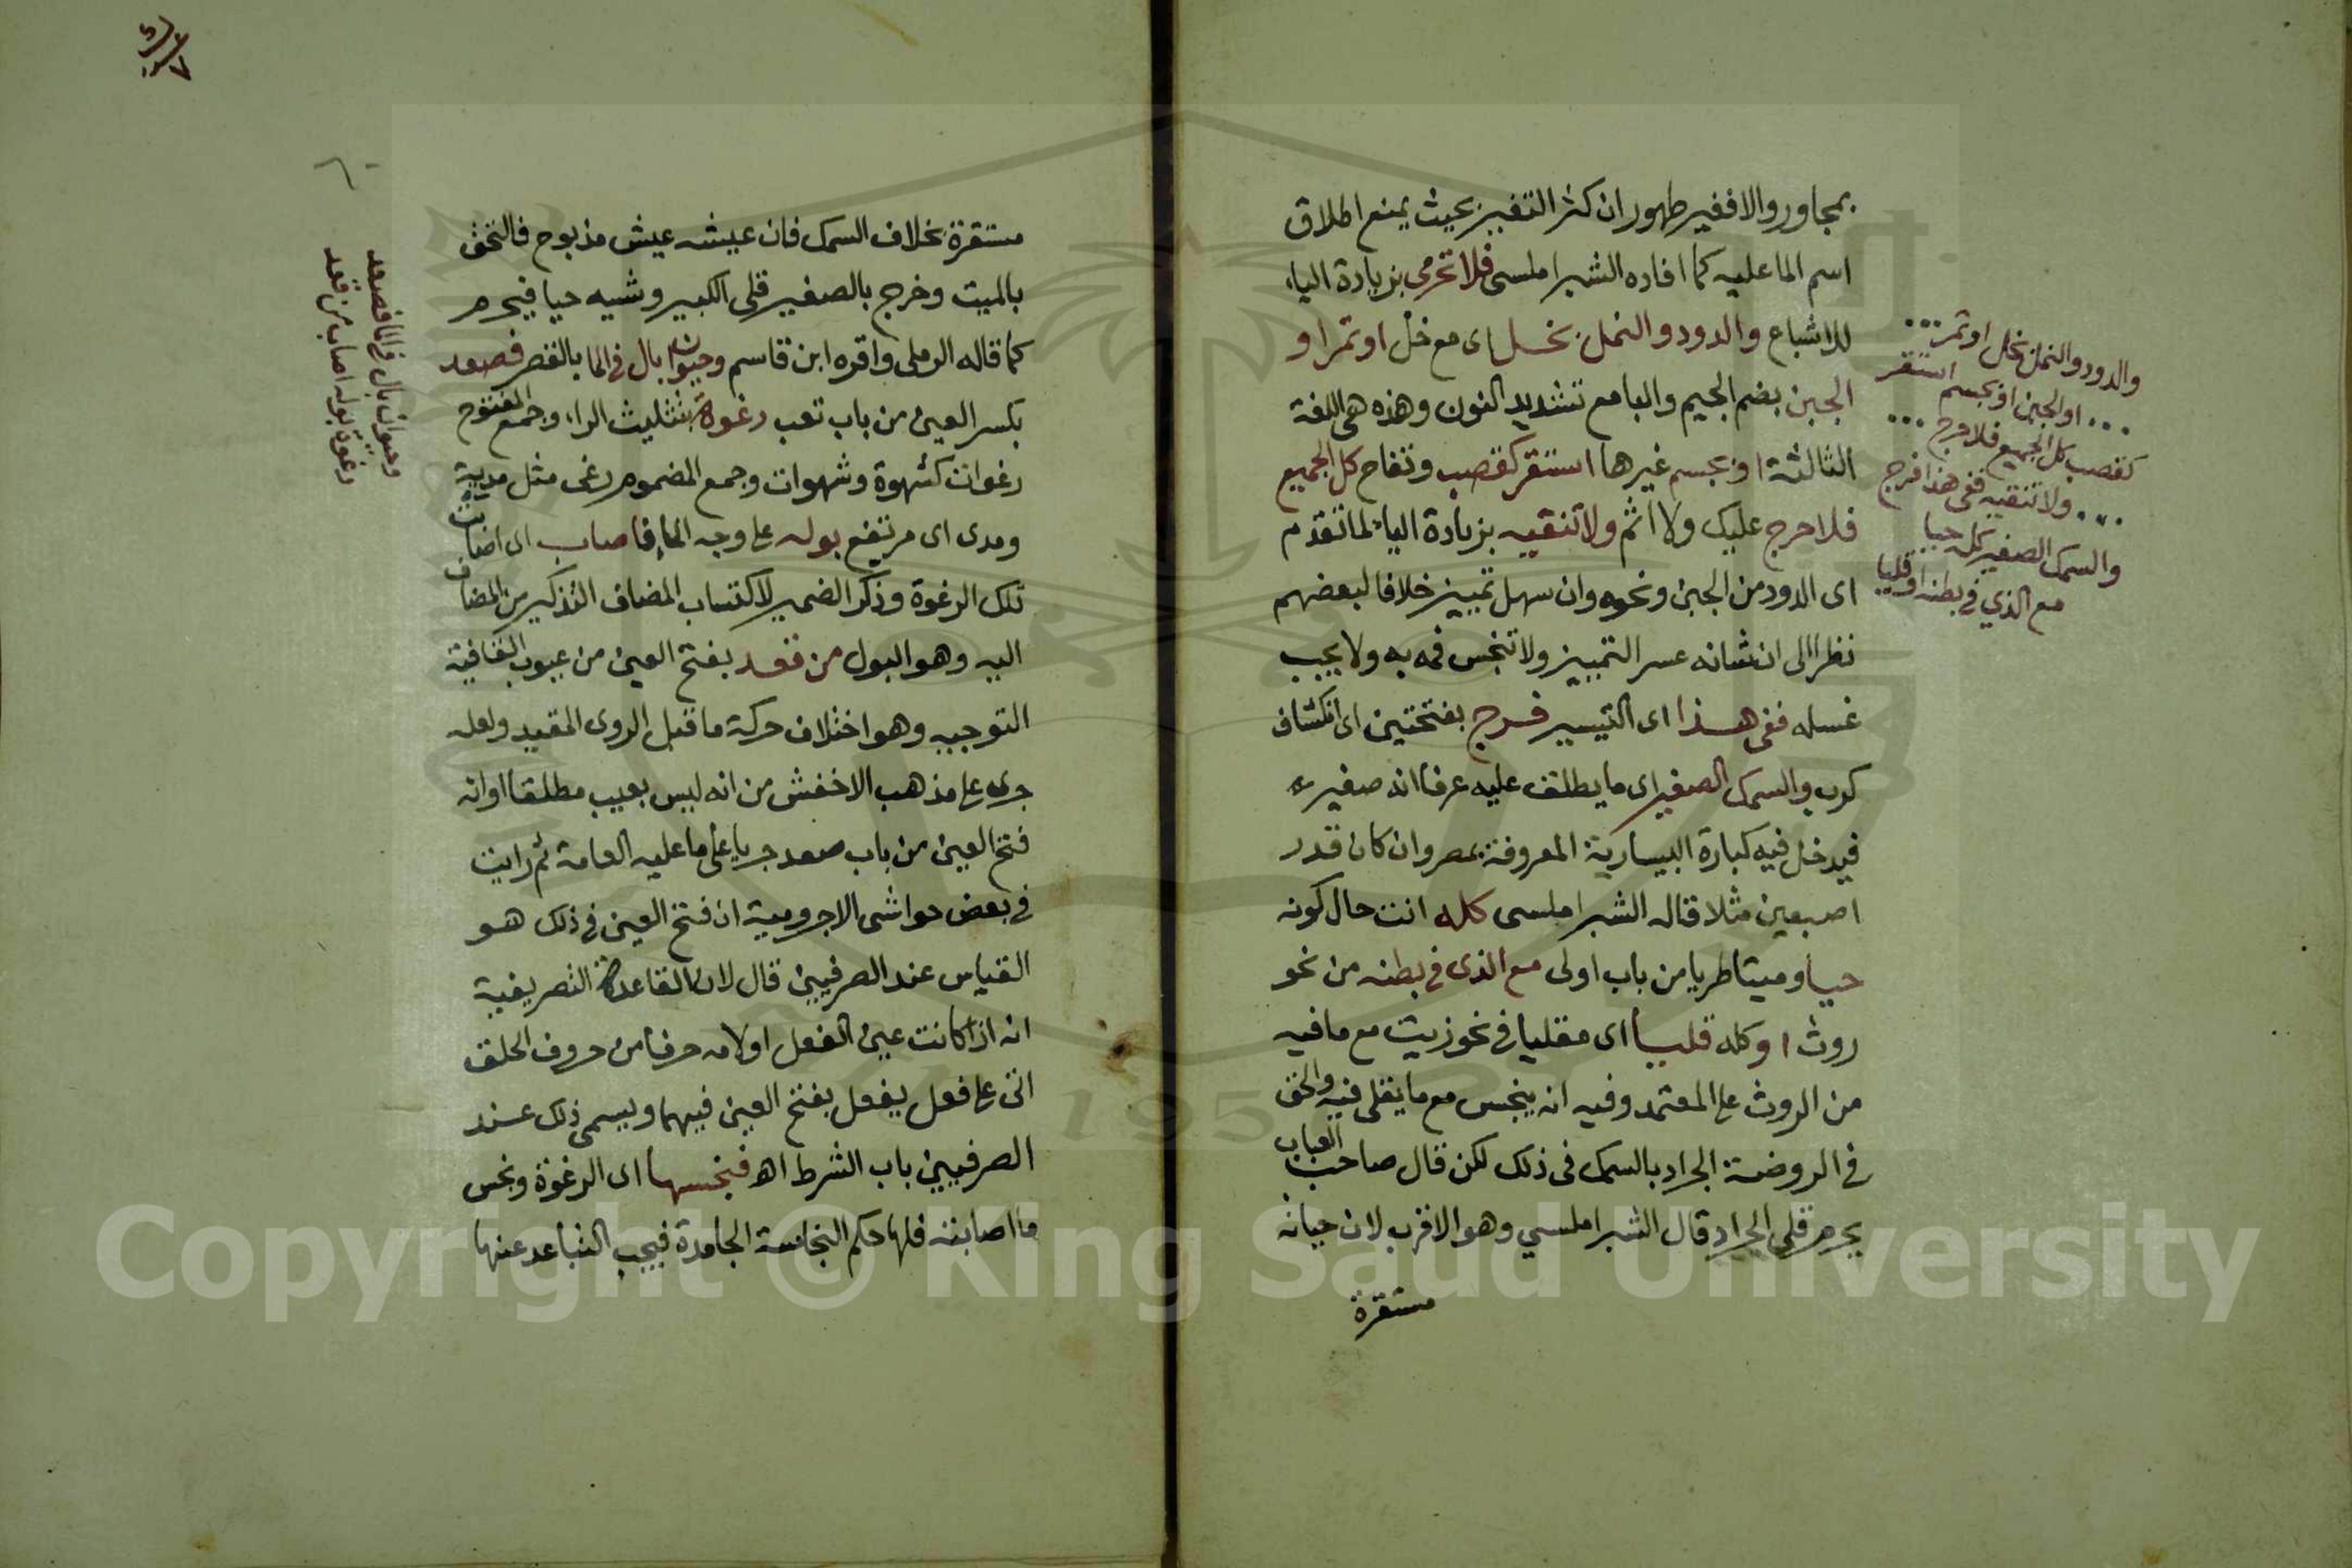 بمجاور والا فغير طهور ان كثر التغير بحيث يمنع اطلاق
اسم الما عليه كما افاده الشبراملسى فلا تحرمى بزيادة الياء
للاشباع والدود والنمل بخل اى مع خل او تمر او
الجبن بضم الجيم والبا مع تشديد النون وهذه هى اللغة
الثالثة او بجسم غيرها استقر كقصب وتفاح كل الجميع
فلا حرج عليك ولا اثم ولا تنقيه بزيادة الياء لما تقدم
اى الدود من الجبن ونحوه وان سهل تمييز خلافا لبعضهم
نظرا الى ان شانه عسر التمييز ولا تنجس فمه به ولا يجب
غسله ففى هذا اى التيسير فرج بفتحتين اى انكشاف
كرب والسمك الصغير اى ما يطلق عليه عرفا انه صغير
فيدخل فيه كبارة البيسارية المعروفة بمصر وان كان قدر
اصبعين مثلا قاله الشبراملسى كله انت حال كونه
حيا وميتا طريا من باب اولى مع الذى فى بطنه من نحو
روث او كله قليا اى مقليا فى نحو زيت مع ما فيه
من الروث على المعتمد وفيه انه ينجس مع ما يقلى فيه والحق
فى الروضة الجراد بالسمك فى ذلك لكن قال صاحب العباب
يحرم قلى الجراد قال الشبراملسي وهو الاقرب لان حياته
مستقرة
والدود والنمل بخل او تمر
او الجبن او بجسم استقر
كقصب كل الجميع فلا حرج
ولا تنقيه ففى هذا فرج
والسمك الصغير كله حيا
مع الذي في بطنه او قليا
٦٠
مستقرة بخلاف السمك فان عيشه عيش مذبوح فالتحق
بالميت وخرج بالصغير قلى الكبير وشيه حيا فيحرم
كما قاله الرملى واقره ابن قاسم وحيوان بال فى الما بالقصر فصعد
بكسر العين من باب تعب رغوة بتثليث الراء وجمع المفتوح
رغوات كشهوة وشهوات وجمع المضموم رغى مثل مدية
ومدى اى مرتفع بوله على وجه الما فاصاب اى اصابت
تلك الرغوة وذكر الضمير لاكتساب المضاف التذكير من المضاف
اليه وهو البول من قعد بفتح العين من عيوب القافية
التوجيه وهو اختلاف حركة ما قبل الروى المقيد ولعله
جرى على مذهب الاخفش من انه ليس بعيب مطلقا او انه
فتح العين من باب صعد جريا على ما عليه العامة ثم رايت
فى بعض حواشى الاجرومية ان فتح العين فى ذلك هو
القياس عند الصرفيين قال لان القاعدة التصريفية
انه اذا كانت عين الفعل او لامه حرفا من حروف الحلق
اتى على فعل يفعل بفتح العين فيهما ويسمى ذلك عند
الصرفيين باب الشرط اه فنجسها اى الرغوة ونجس
ما اصابته فلها حكم النجاسة الجامدة فيجب التباعد عنها
وحيوان بال فى الما فصعد
رغوة بوله اصاب من قعد
Copyright © King Saud University
195